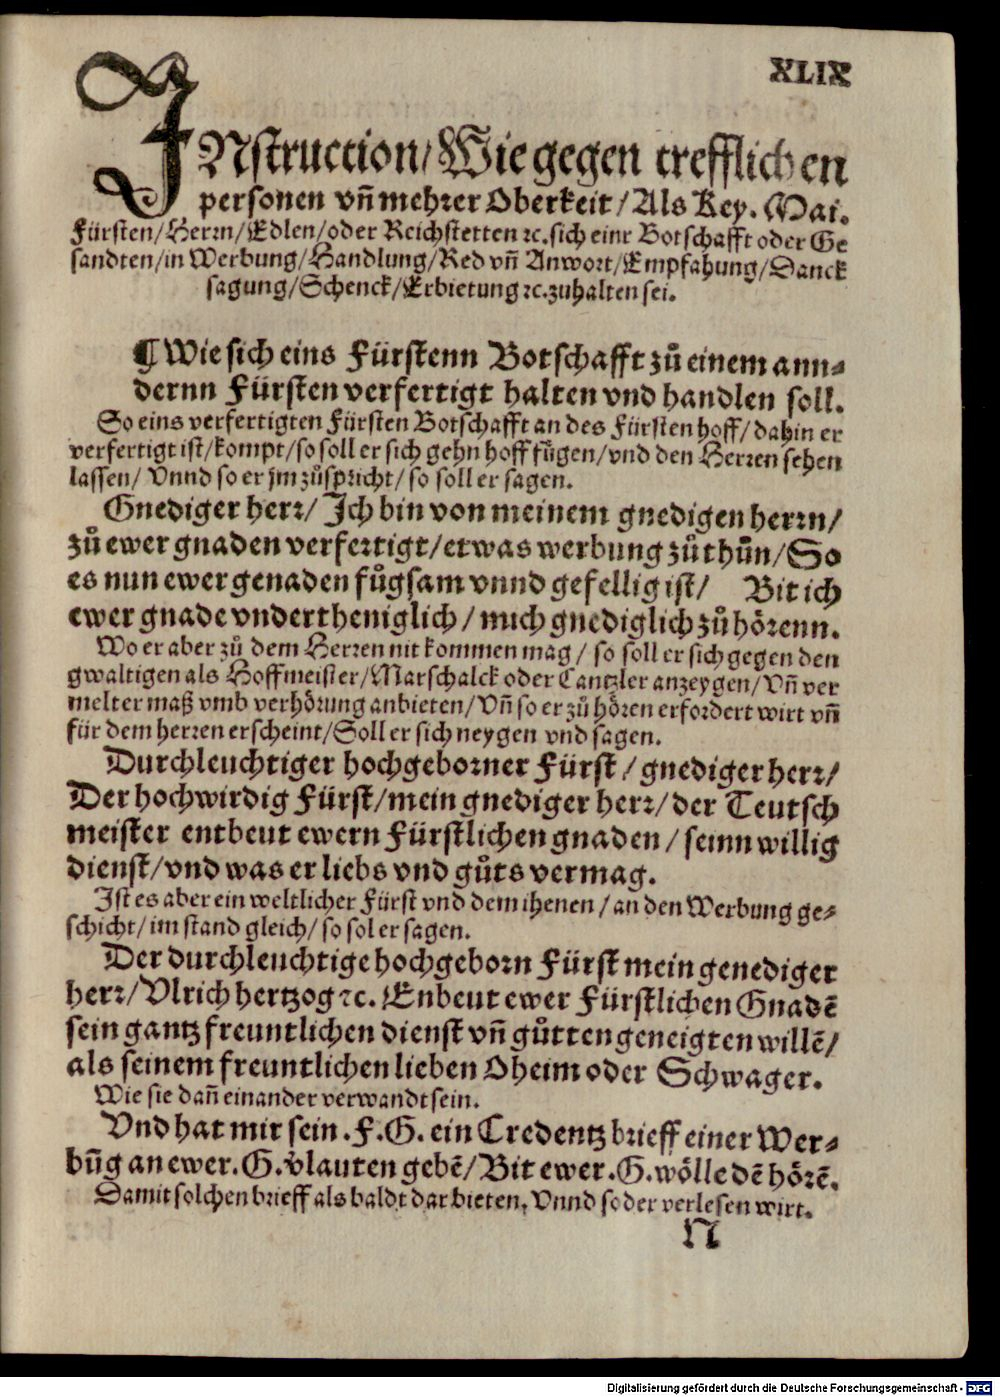 XLIX
INstruction/ Wie gegen trefflichen
personen vñ mehrer Oberkeit/ Als Key. Mai.
Fürsten/ Herrn/ Edlen/ oder Reichstetten ꝛc. sich einr Botschafft oder Ge
sandten/ in Werbung/ Handlung/ Red vñ Anwort/ Empfahung/ Danck
sagung/ Schenck/ Erbietung ꝛc. zuhalten sei.
¶ Wie sich eins Fürstenn Botschafft zů einem ann-
dernn Fürsten verfertigt halten vnd handlen soll.
So eins verfertigten Fürsten Botschafft an des Fürsten hoff/ dahin er
verfertigt ist/ kompt/ so soll er sich gehn hoff fůgen/ vnd den Herren sehen
lassen/ Vnnd so er jm zůspricht/ so soll er sagen.
Gnediger herr/ Ich bin von meinem gnedigen herrn/
zů ewer gnaden verfertigt/ etwas werbung zůthůn/ So
es nun ewer genaden fůgsam vnnd gefellig ist/ Bit ich
ewer gnade vndertheniglich/ mich gnediglich zů hörenn.
Wo er aber zů dem Herren nit kommen mag/ so soll er sich gegen den
gwaltigen als Hoffmeister/ Marschalck oder Cantzler anzeygen/ Vñ ver
melter maß vmb verhörung anbieten/ Vñ so er zů hören erfordert wirt vñ
für dem herren erscheint/ Soll er sich neygen vnd sagen.
Durchleuchtiger hochgeborner Fürst/ gnediger herr/
Der hochwirdig Fürst/ mein gnediger herr/ der Teutsch
meister entbeut ewern Fürstlichen gnaden/ seinn willig
dienst/ vnd was er liebs vnd gůts vermag.
Ist es aber ein weltlicher Fürst vnd dem ihenen/ an den Werbung ge-
schicht/ im stand gleich/ so sol er sagen.
Der durchleuchtige hochgeborn Fürst mein genediger
herr/ Vlrich hertzog ꝛc. Enbeut ewer Fürstlichen Gnadē
sein gantz freuntlichen dienst vñ gůtten geneigten willē/
als seinem freuntlichen lieben Oheim oder Schwager.
Wie sie dañ einander verwandt sein.
Vnd hat mir sein .F.G. ein Credentz brieff einer Wer-
būg an ewer .G. v̈lauten gebē/ Bit ewer .G. wölle dē hörē.
Damit solchen brieff als baldt dar bieten, Vnnd so der verlesen wirt.
N
Digitalisierung gefördert durch die Deutsche Forschungsgemeinschaft - DFG